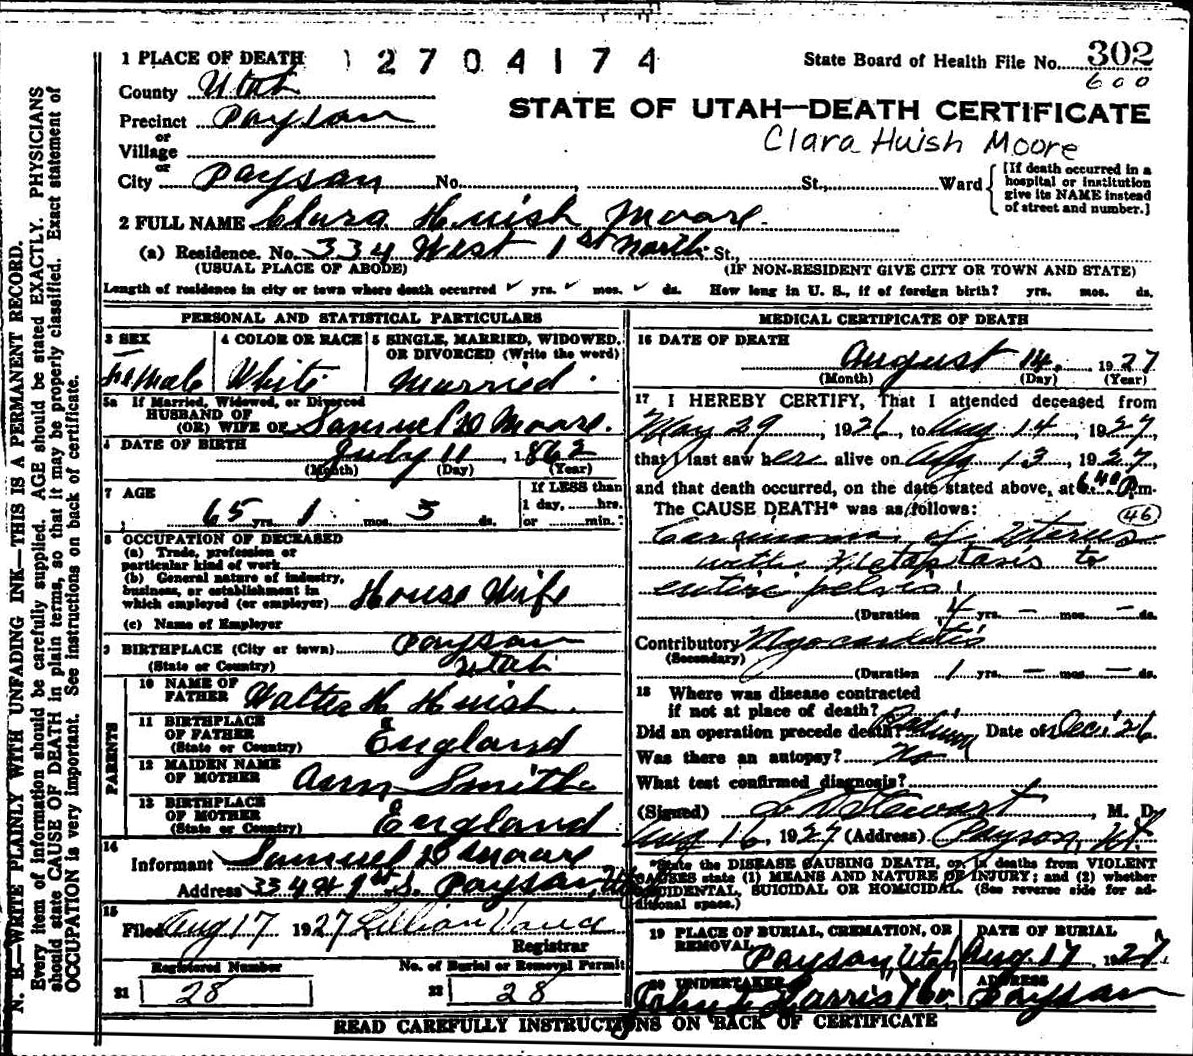 1 PLACE OF DEATH 12704174
State Board of Health File No. 302
600
County Utah
STATE OF UTAH—DEATH CERTIFICATE
Precinct Payson
or
Clara Huish Moore
Village
or
City Payson No. , St., Ward {[If death occurred in a hospital or institution give its NAME instead of street and number.]
2 FULL NAME Clara Huish Moore.
(a) Residence. No. 334 West 1st North St.,
(USUAL PLACE OF ABODE) (IF NON-RESIDENT GIVE CITY OR TOWN AND STATE)
Length of residence in city or town where death occurred ✓ yrs. ✓ mos. ✓ ds. How long in U. S., if of foreign birth? yrs. mos. ds.
PERSONAL AND STATISTICAL PARTICULARS
3 SEX
Female
4 COLOR OR RACE
White
5 SINGLE, MARRIED, WIDOWED, OR DIVORCED (Write the word)
Married.
5a If Married, Widowed, or Divorced
HUSBAND OF
(OR) WIFE OF Samuel D Moore.
6 DATE OF BIRTH July 11, 1862
(Month) (Day) (Year)
7 AGE
65 yrs. 1 mos. 3 ds.
If LESS than
1 day, hrs.
or min.
8 OCCUPATION OF DECEASED
(a) Trade, profession or
particular kind of work
(b) General nature of industry,
business, or establishment in
which employed (or employer) House Wife
(c) Name of Employer
9 BIRTHPLACE (City or town) Payson
(State or Country) Utah
PARENTS
10 NAME OF
FATHER Walter H Huish.
11 BIRTHPLACE
OF FATHER
(State or Country) England
12 MAIDEN NAME
OF MOTHER Ann Smith
13 BIRTHPLACE
OF MOTHER
(State or Country) England
14
Informant Samuel D Moore
Address 334 W 1st S. Payson, Ut
15
Filed Aug 17 1927 Lillian
Registrar
Registered Number
21 28
No. of Burial or Removal Permit
22 28
MEDICAL CERTIFICATE OF DEATH
16 DATE OF DEATH
August 14, 1927
(Month) (Day) (Year)
17 I HEREBY CERTIFY, That I attended deceased from
May 29, 1926, to Aug 14, 1927,
that I last saw her alive on Aug 13, 1927,
and that death occurred, on the date stated above, at 6 40 P.m.
The CAUSE DEATH* was as follows: 46
Carcinoma of Uterus
with Metastasis to
entire pelvis.
(Duration 4 yrs. – mos. – ds.
Contributory Myocarditis
(Secondary)
(Duration 1 yrs. – mos. – ds.
18 Where was disease contracted
if not at place of death?
Did an operation precede death? Radium Date of Dec. '26.
Was there an autopsy? No
What test confirmed diagnosis?
(Signed) Stewart, M. D.
Aug 16, 1927 (Address) Payson, Ut.
*State the DISEASE CAUSING DEATH, or, in deaths from VIOLENT
CAUSES state (1) MEANS AND NATURE OF INJURY; and (2) whether
ACCIDENTAL, SUICIDAL OR HOMICIDAL. (See reverse side for ad-
ditional space.)
19 PLACE OF BURIAL, CREMATION, OR
REMOVAL
Payson, Utah
DATE OF BURIAL
Aug. 17, 1927
20 UNDERTAKER
ADDRESS
Payson
READ CAREFULLY INSTRUCTIONS ON BACK OF CERTIFICATE
N. B.—WRITE PLAINLY WITH UNFADING INK—THIS IS A PERMANENT RECORD.
Every item of information should be carefully supplied. AGE should be stated EXACTLY. PHYSICIANS
should state CAUSE OF DEATH in plain terms, so that it may be properly classified. Exact statement of
OCCUPATION is very important. See instructions on back of certificate.